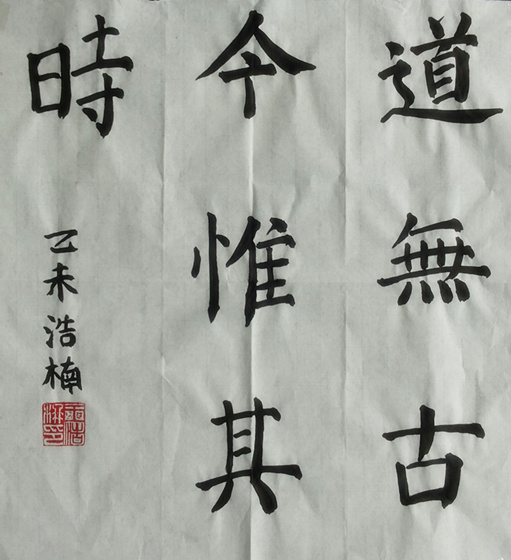 道無古
今惟其
時
乙未浩楠